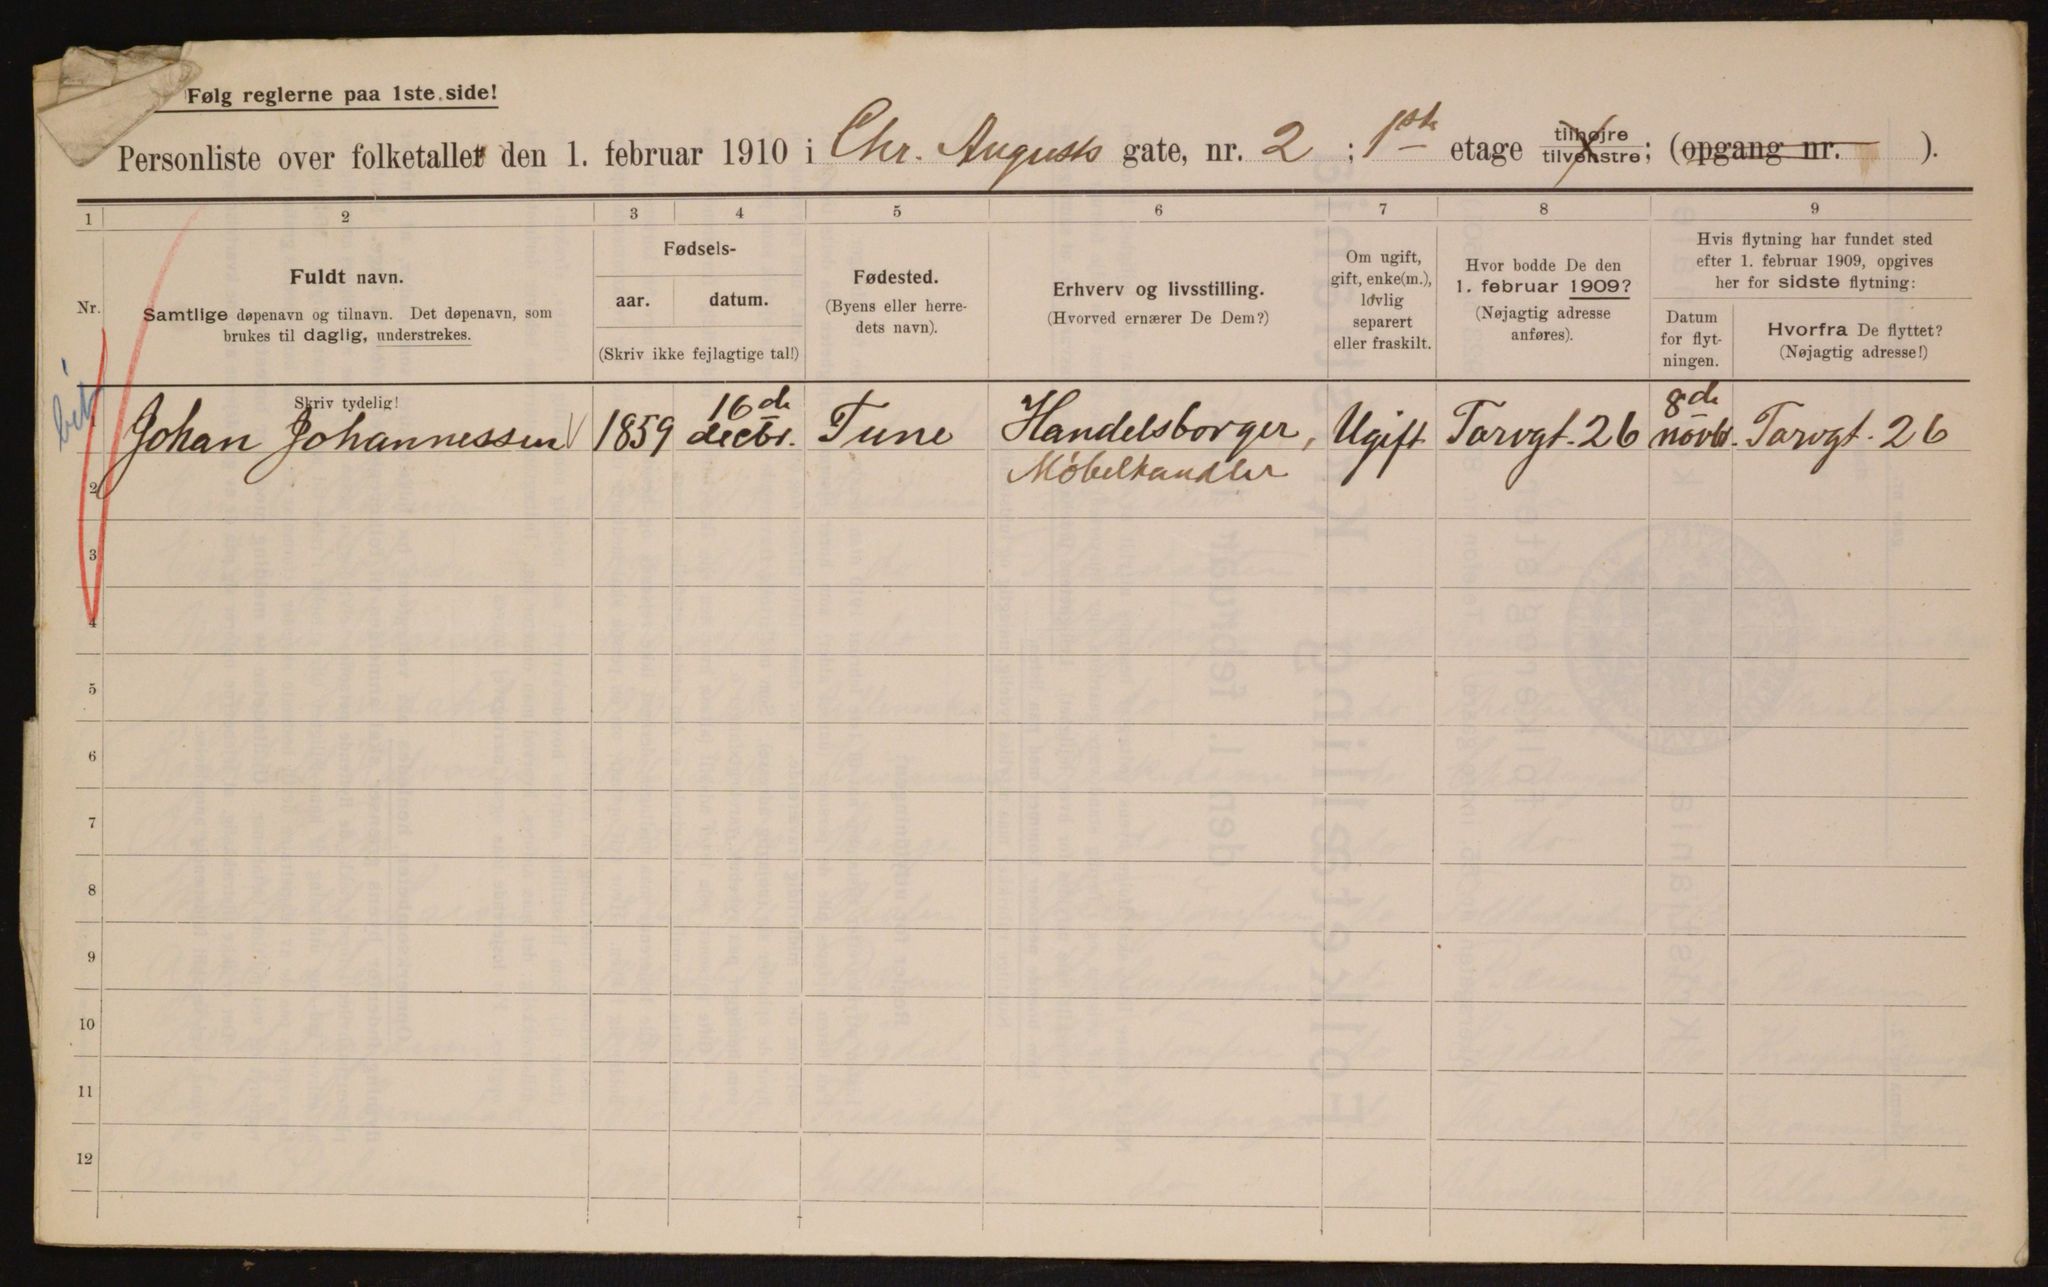 Følg reglerne paa 1ste side!
Personliste over folketallet den 1. februar 1910 i Chr. Augusts gate, nr. 2 ; 1ste etage tilhøjre tilvenstre; (opgang nr. ).
1 2 3 4 5 6 7 8 9
Nr.
Fuldt navn.
Samtlige døpenavn og tilnavn. Det døpenavn, som
brukes til daglig, understrekes.
Skriv tydelig!
Fødsels-
aar. datum.
(Skriv ikke fejlagtige tal!)
Fødested.
(Byens eller herre-
dets navn).
Erhverv og livsstilling.
(Hvorved ernærer De Dem?)
Om ugift,
gift, enke(m.),
lovlig
separert
eller fraskilt.
Hvor bodde De den
1. februar 1909?
(Nøjagtig adresse
anføres).
Hvis flytning har fundet sted
efter 1. februar 1909, opgives
her for sidste flytning:
Datum
for flyt-
ningen.
Hvorfra De flyttet?
(Nøjagtig adresse!)
1 Johan Johannessen 1859 16de decbr. Tune Handelsborger, Ugift Torvgt. 26 8de novbr. Torvgt. 26
Møbelhandler
2
3
4
5
6
7
8
9
10
11
12